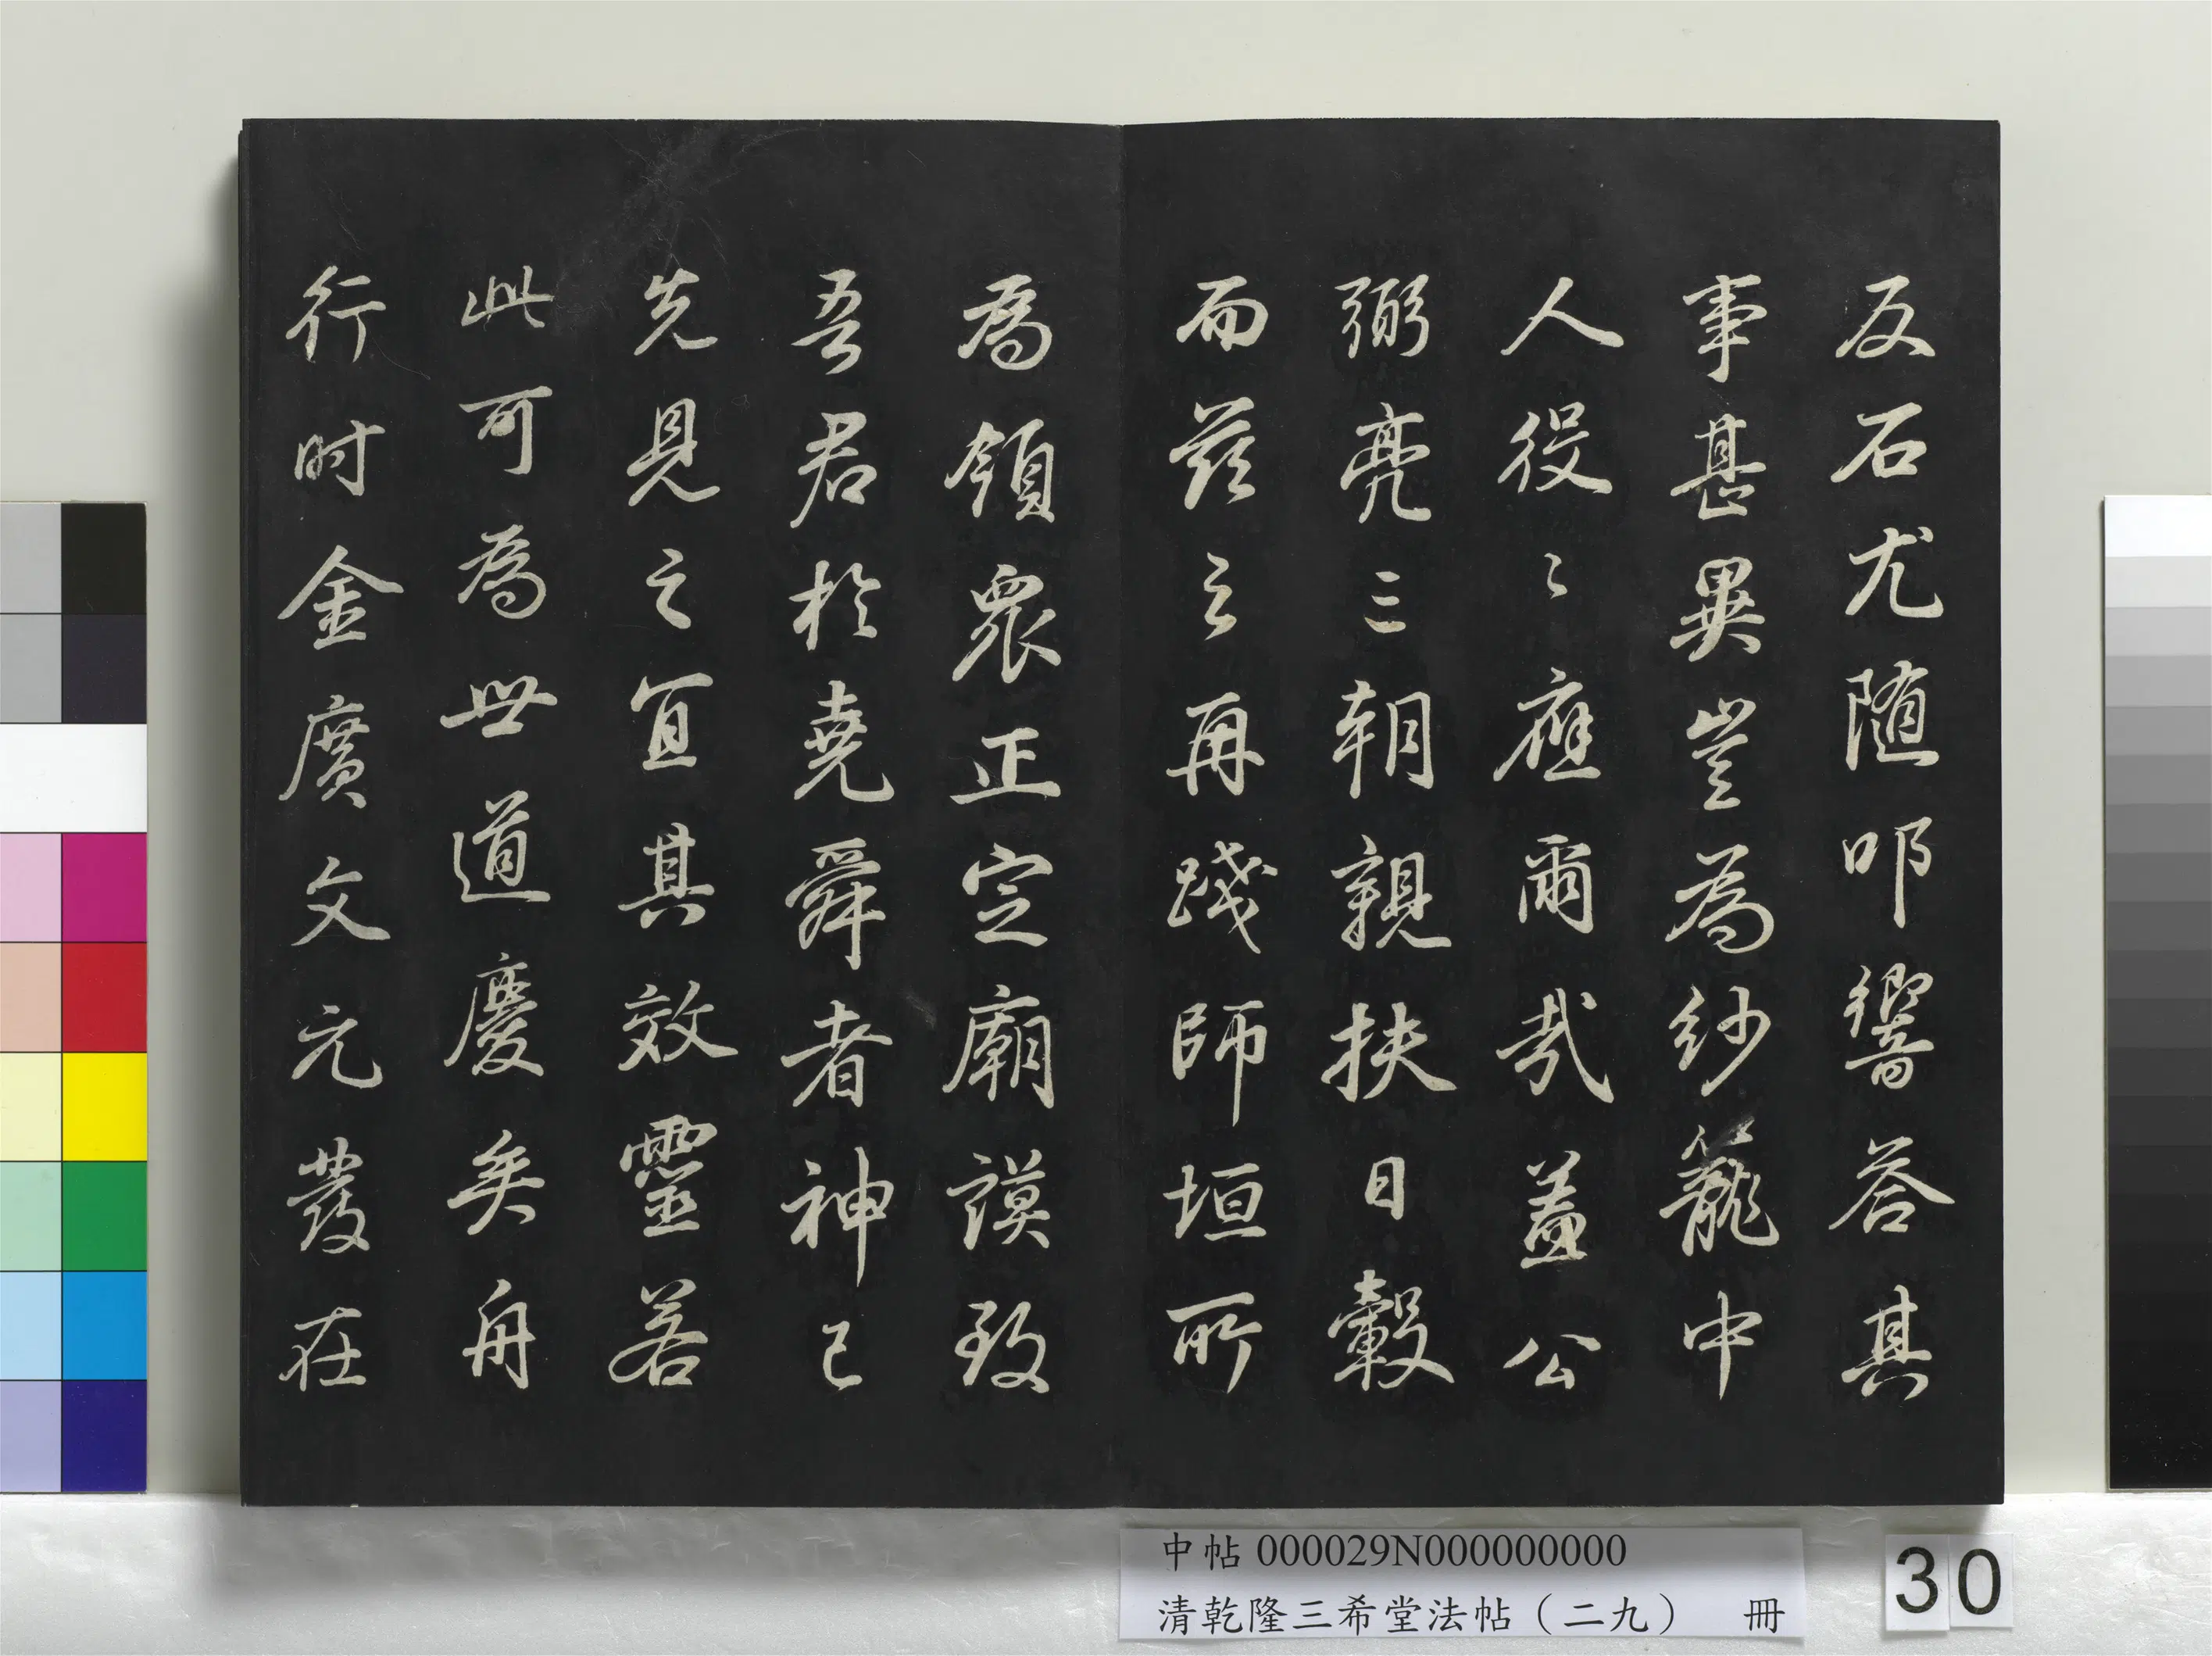 反石尤随叩響荅其
事甚異豈為紗籠中
人役〻應爾㢤蓋公
弼亮三朝親扶日轂
而茲之再踐師垣所
為領眾正定廟謨致
吾君於堯舜者神已
先見之宜其效靈若
此可為世道慶矣舟
行时金廣文元發在
中帖 000029N000000000
清乾隆三希堂法帖（二九） 冊
30